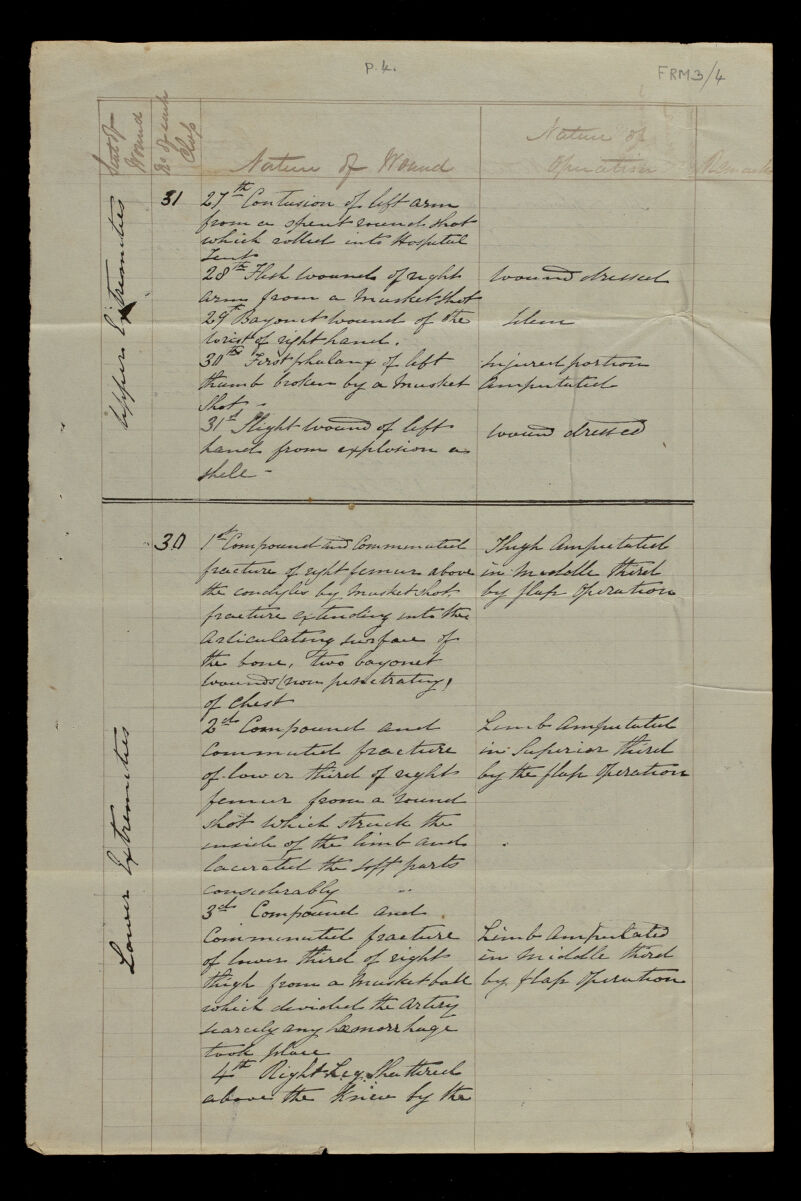 p. 4.
FRM3/4
Seat of Wound
No of each Class
Nature of Wound
Nature of Operation
Remarks
Upper Extremities
31
27th Contusion of left arm
from a spent round shot
which rolled into Hospital
Tent
28th Flesh wound of right
arm from a Musket Shot
wound dressed
29th Bayonet wound of the
wrist of right hand.
Idem
30th First phalanx of left
thumb broken by a Musket
Shot -
Injured portion
amputated
31st Slight wound of left
hand from explosion a
shell -
wound dressed
Lower Extremities
30
1st Compound and Commenuted
fracture of right femur above
the condyles by Musket shot.
fracture extending into the
Articulating surface of
the bone, two bayonet
wounds (non penetrating)
of Chest
Thigh Amputated
in Middle third
by flap Operation
2nd Compound and
Commenuted fracture
of lower third of right
femur from a round
shot which struck the
inside of the limb and
lacerated the soft parts
considerably
Limb Amputated
in Superior third
by the flap Operation
3rd Compound and
Commenuted fracture
of lower third of right
thigh from a Musket ball
which divided the Artery
scarcely any hæmorrhage
took place
Limb Amputated
in Middle third
by flap Operation
4th Right Leg Shattered
above the Knee by the